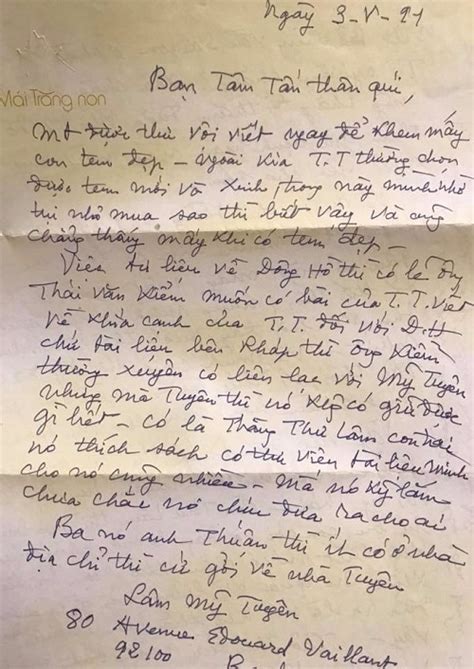 Ngày 3-V-91
Mái Trăng non
Bạn Tâm Tấn thân quí,
MT được thư vội viết ngay để khen mấy
con tem đẹp - Ngoài kia T.T thường chọn
được tem mới và xinh, trong này mình nhờ
tụi nhỏ mua sao thì biết vậy và cũng
chẳng thấy mấy khi có tem đẹp -
Viên tư liệu về Đông Hồ thì có lẽ ông
Thái Văn Kiểm muốn có bài của T.T. viết
về khía cạnh của T.T. đối với D.H
chứ tài liệu bên Pháp thì ông Kiểm
thường xuyên có liên lạc với Mỹ Tuyên
nhưng mà Tuyên thì nó có giữ được
gì hết - có là Thằng Thứ Lâm con trai
nó thích sách có thư viện tài liệu mình
cho nó cũng nhiều - Mà nó kỹ lắm
chưa chắc nó chịu đưa ra cho ai
Ba nó anh Thuần thì ít có ở nhà
địa chỉ thì cứ gởi về nhà Tuyên
Lâm Mỹ Tuyên
80 Avenue Edouard Vaillant
92100